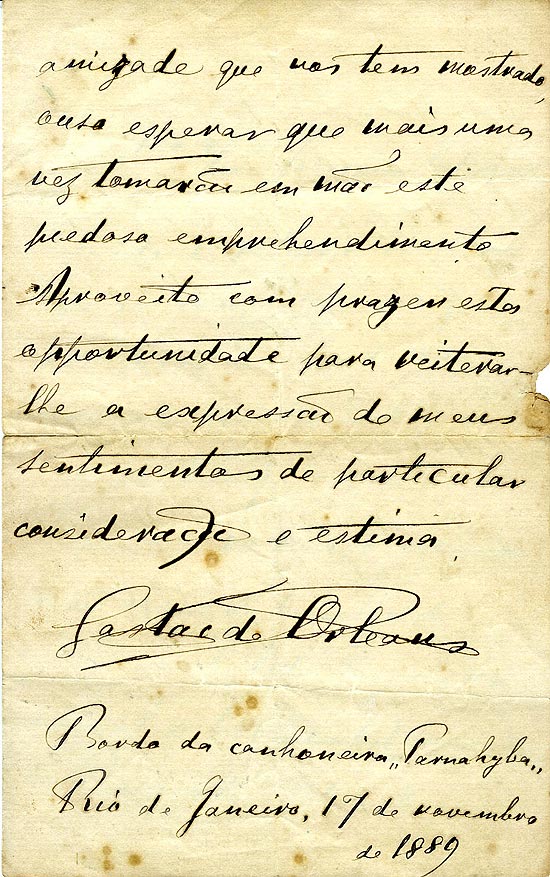 amizade que nos tem mostrado,
ouso esperar que mais uma
vez tomarão em mão este
piedoso emprehendimento
Aproveito com prazer esta
opportunidade para reiterar-
lhe a expressão de meus
sentimentos de particular
consideração e estima.
Gastão de Orleans
Bordo da canhoneira „Parnahyba„
Rio de Janeiro, 17 de novembro
de 1889